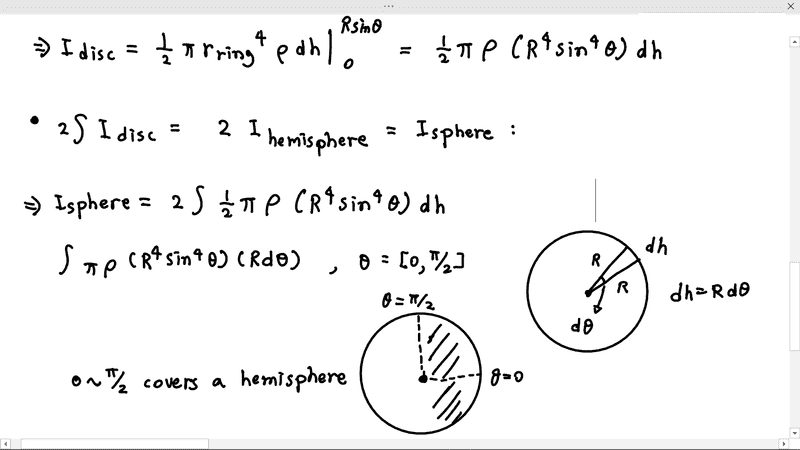 ⇒ I disc = 1/2 π r ring⁴ ρ dh |₀^(R sinθ) = 1/2 π ρ (R⁴ sin⁴ θ) dh
• 2∫ I disc = 2 I hemisphere = I sphere :
⇒ I sphere = 2 ∫ 1/2 π ρ (R⁴ sin⁴ θ) dh
∫ π ρ (R⁴ sin⁴ θ) (R dθ) , θ = [0, π/2]
R
R
dh
dθ
dh = R dθ
θ = π/2
θ = 0
0 ~ π/2 covers a hemisphere